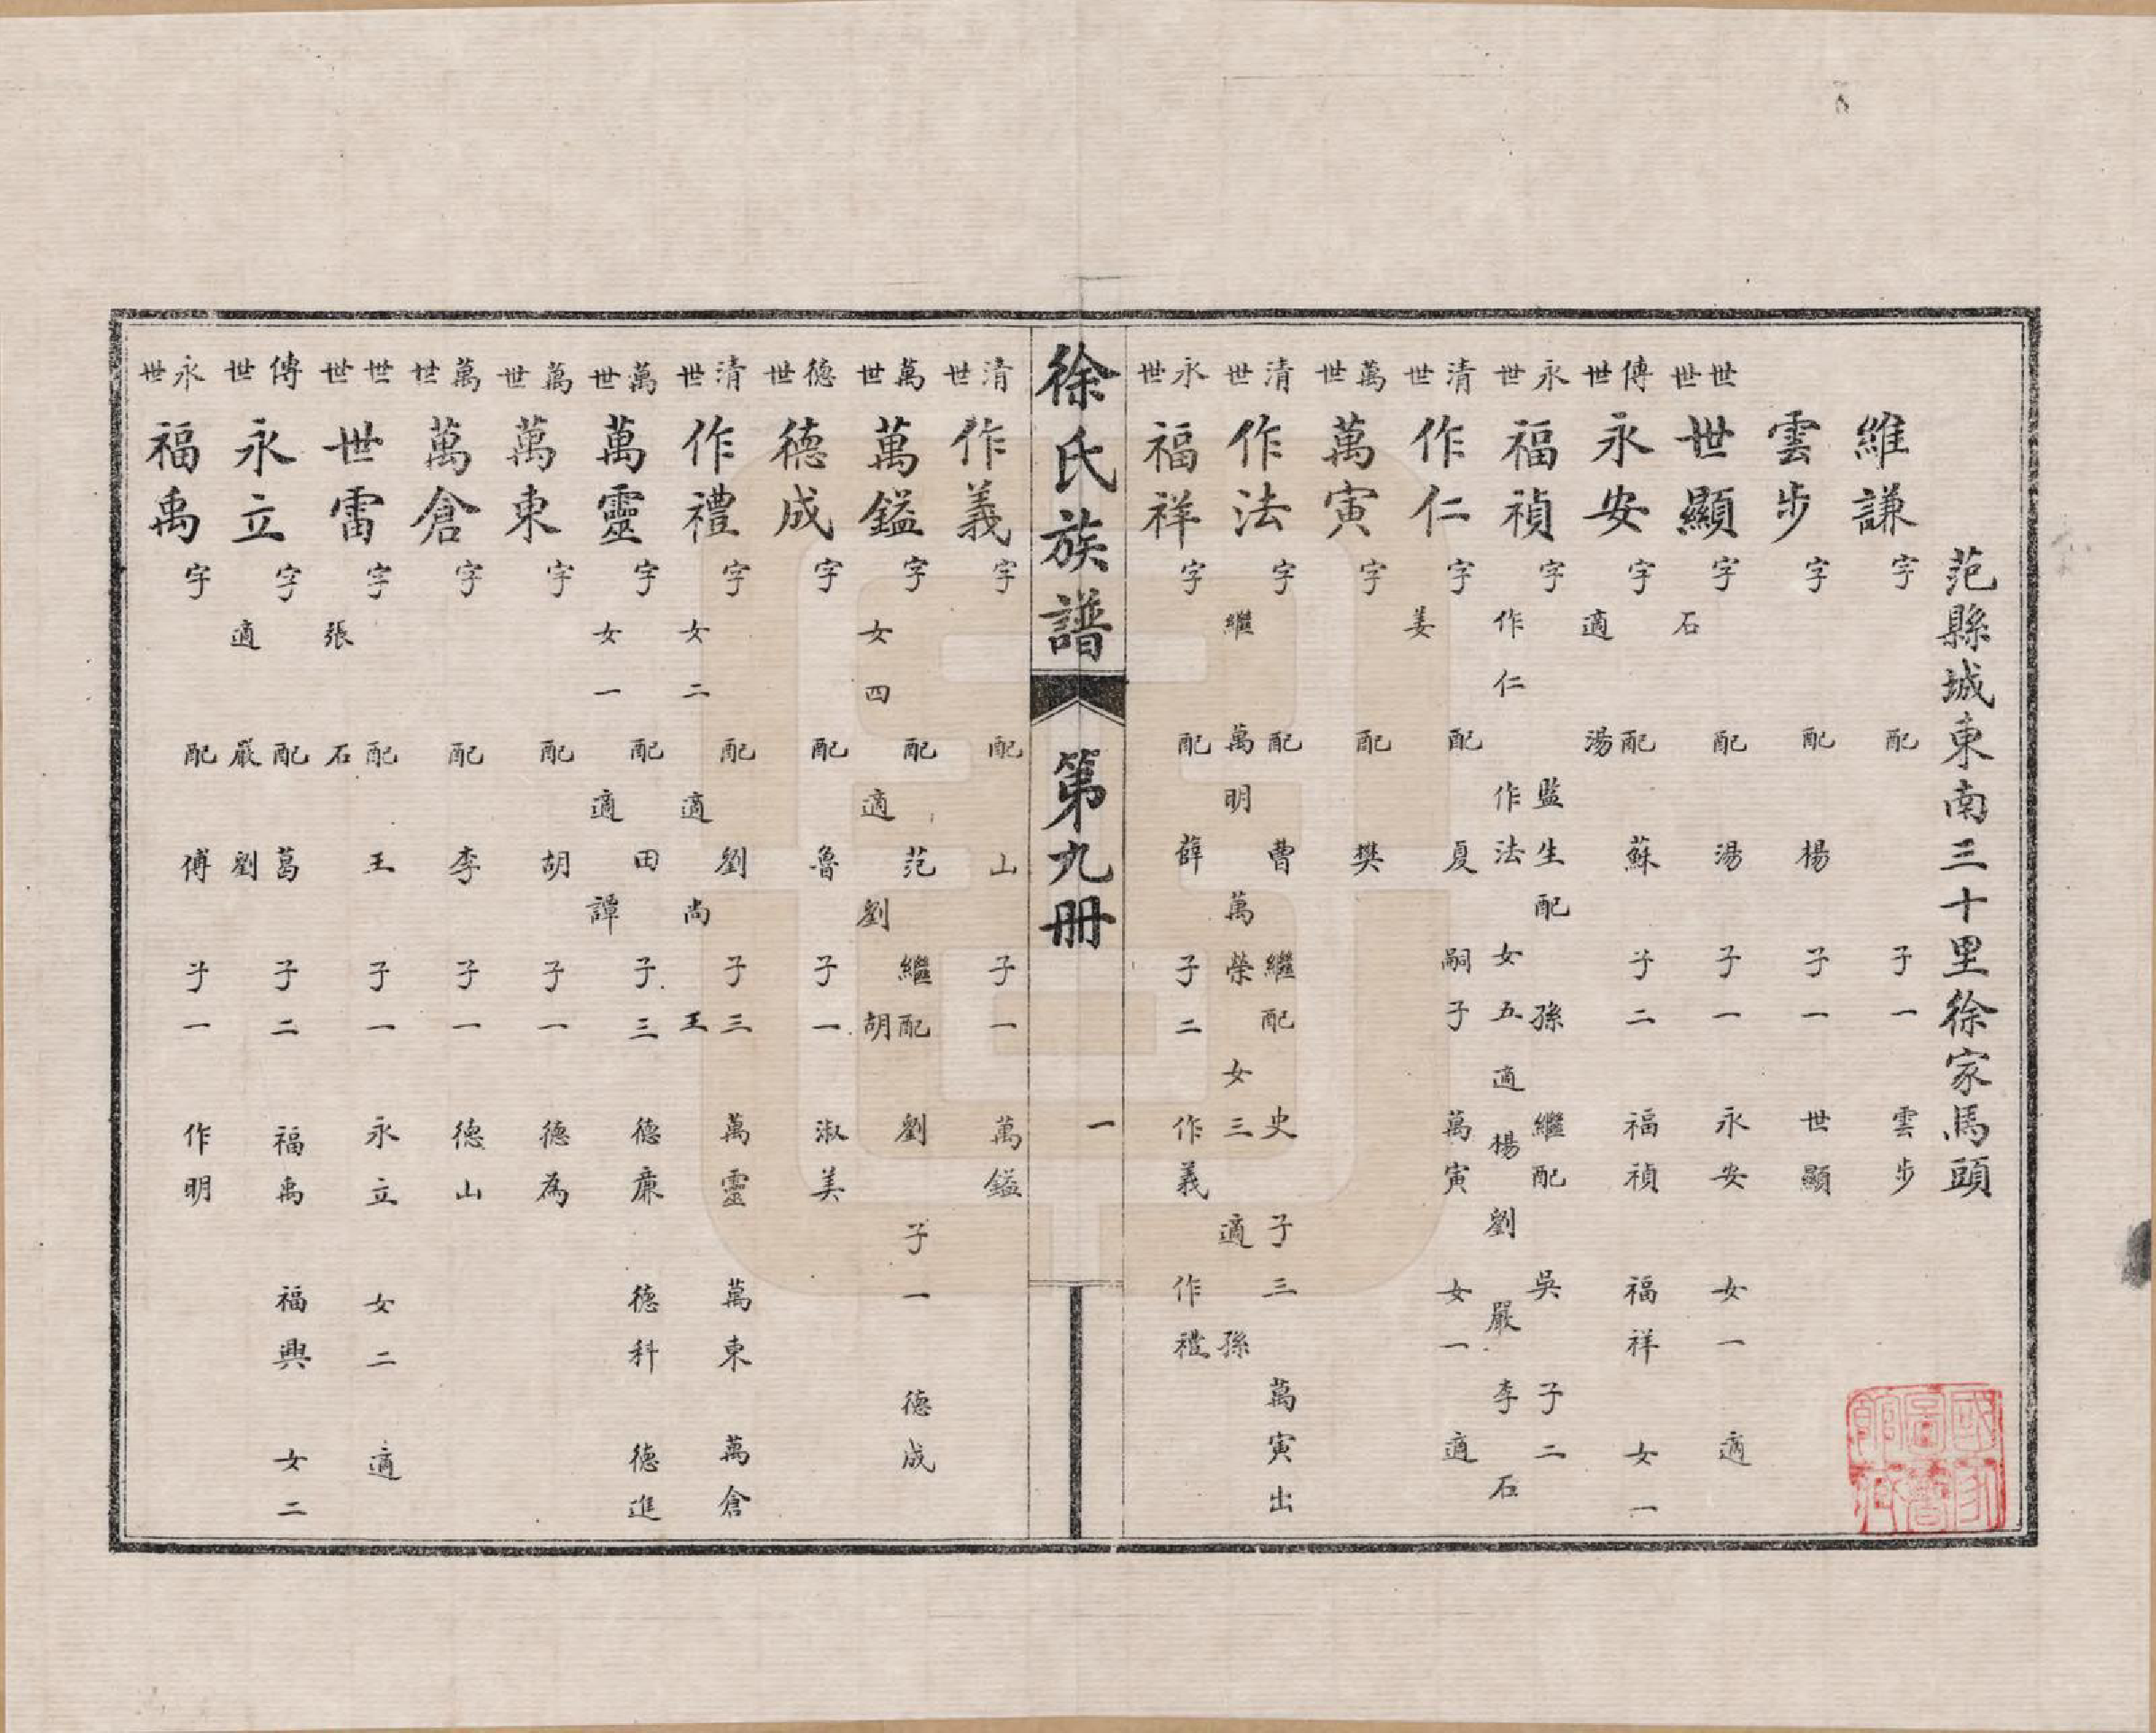 范縣城東南三十里徐家馬頭
維謙 字 配 子一 雲步
雲步 字 配 楊 子一 世顯
世世 世顯 字 配 湯 子一 永安 女一 適
石
傳世 永安 字 配 蘇 子二 福禎 福祥 女一
適 湯
永世 福禎 字 監生配 孫 繼配 吳 子二
作仁 作法 女五 適 楊 劉 嚴 李 石
清世 作仁 字 配 夏 嗣子 萬寅 女一 適
姜
萬世 萬寅 字 配 樊
清世 作法 字 配 曹 繼配 史 子三 萬寅出
繼 萬明 萬榮 女三 適 孫
永世 福祥 字 配 薛 子二 作義 作禮
徐氏族譜 第九冊 一
清世 作義 字 配 山 子一 萬鎰
萬世 萬鎰 字 配 范 繼配 劉 子一 德成
女四 適 劉 胡
德世 德成 字 配 魯 子一 淑美
清世 作禮 字 配 劉 子三 萬靈 萬東 萬倉
女二 適 尚 王
萬世 萬靈 字 配 田 子三 德廉 德科 德進
女一 適 譚
萬世 萬東 字 配 胡 子一 德為
萬世 萬倉 字 配 李 子一 德山
世世 世雷 字 配 王 子一 永立 女二 適
張 石
傳世 永立 字 配 葛 子二 福禹 福興 女二
適 嚴 劉
永世 福禹 字 配 傅 子一 作明
國家圖書館藏